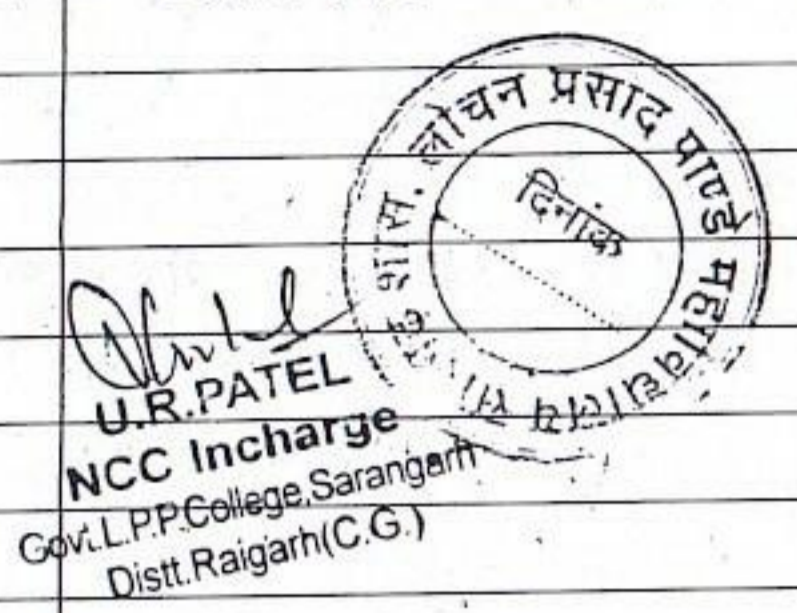 शास. लोचन प्रसाद पाण्डे महाविद्यालय
दिनांक
U.R.PATEL
NCC Incharge
Govt.L.P.P.College,Sarangarh
Distt.Raigarh(C.G.)